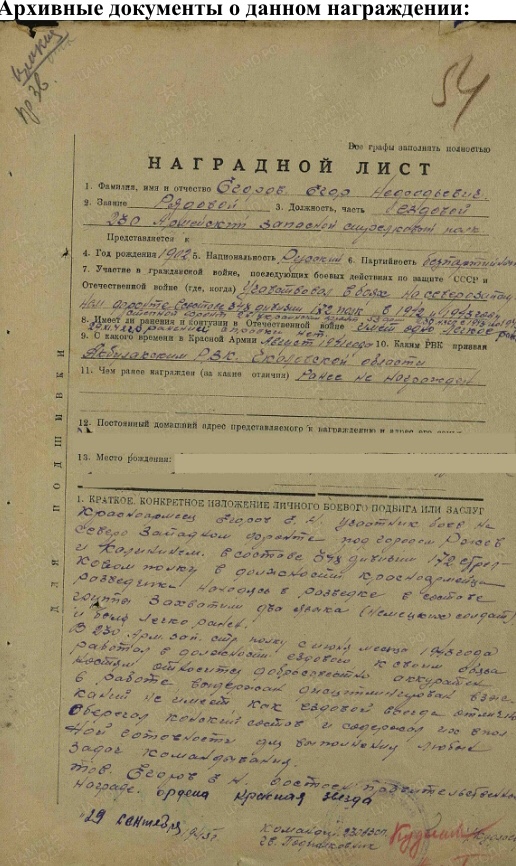 Архивные документы о данном награждении:
54
Все графы заполнять полностью
НАГРАДНОЙ ЛИСТ
1. Фамилия, имя и отчество Егоров Егор
2. Звание Рядовой 3. Должность, часть Ездовой
230 Армейский запасной стрелковый полк
Представляется к
4. Год рождения 1902 5. Национальность Русский 6. Партийность беспартийный
7. Участие в гражданской войне, последующих боевых действиях по защите СССР и
Отечественной войне (где, когда) Участвовал в боях на северозапад
ном фронте 1942 и 1943 году
8. Имеет ли ранения и контузии в Отечественной войне имеет одно легкое
9. С какого времени в Красной Армии Август 1941 года 10. Каким РВК призван
РВК области
11. Чем ранее награжден (за какие отличия) Ранее не награжден
12. Постоянный домашний адрес представляемого к награждению и адрес его
13. Место рождения:
ДЛЯ ПОДШИВКИ
1. КРАТКОЕ, КОНКРЕТНОЕ ИЗЛОЖЕНИЕ ЛИЧНОГО БОЕВОГО ПОДВИГА ИЛИ ЗАСЛУГ
Красноармеец Егоров Е. Н. участник боев на
Северо Западном фронте под городом Ржев
и Калинином. в составе дивизии 172 стрел-
ковом полку в должности красноармейца
разведчика. Находясь в разведке в составе
группы захватили два языка (немецких солдат)
и была легко ранен.
В 230 Арм. зап. стр. полку с июля месяца 1943 года
работал в должности ездового к своим обяза
ностям относится добросовестно аккуратен
в работе выдержан дисциплинирован взыс
каний не имеет как ездовой всегда отлично
оберегал конский состав и содержал их в пол
ной готовности для выполнения любых
задач командования.
тов. Егоров Е Н. достоен правительственной
награде. ордена Красная звезда
"29 сентября
Командир 230 АЗСП